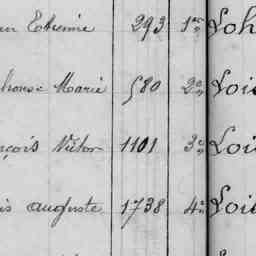 an Etienne 293 1er Loh
honse Marie 580 2e Lois
nçois Victor 1101 3e Loi
is auguste 1738 4e Loi